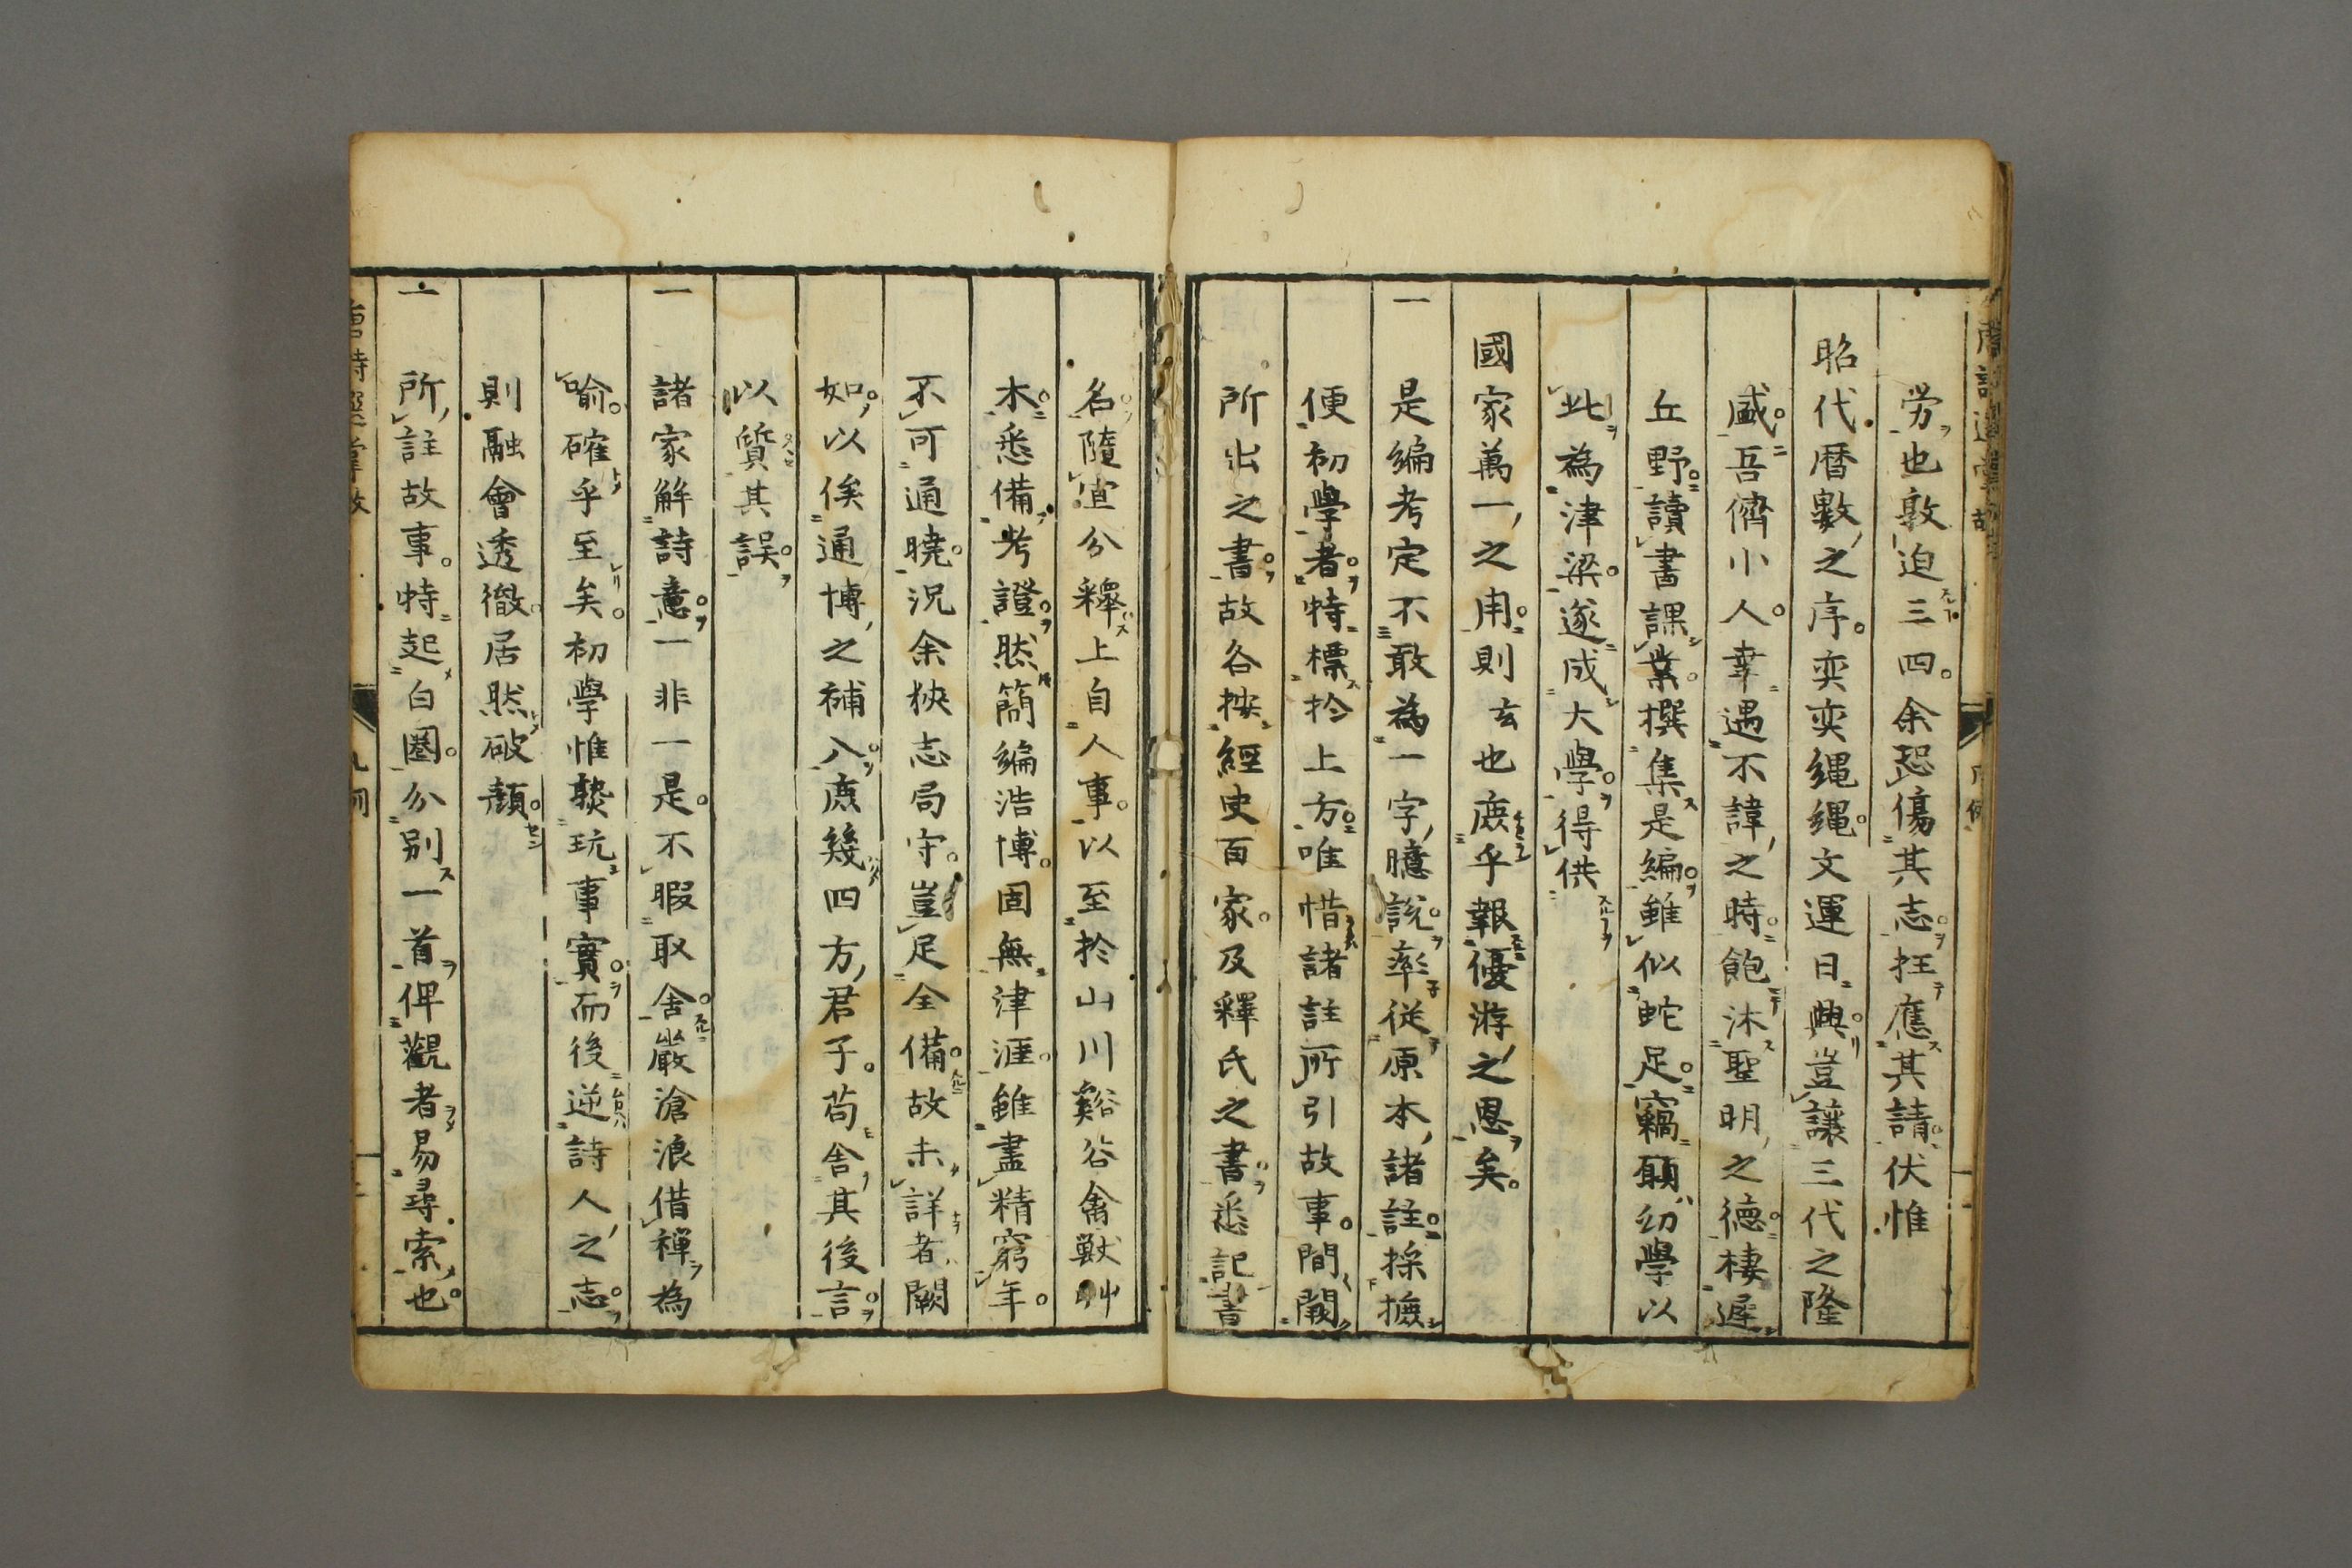 勞也敦迫三四余恐傷其志枉應其請伏惟
昭代曆數之序奕奕繩繩文運日興豈讓三代之隆
盛吾儕小人幸遇不諱之時飽沐聖明之德棲遲
丘野讀書課業撰集是編雖似蛇足竊願幼學以
此為津梁遂成大學得供
國家萬一之用則玄也庶乎報優游之恩矣
一是編考定不敢為一字臆說率從原本諸註採摭
便初學者特標於上方唯惜諸註所引故事間闕
所出之書故各按經史百家及釋氏之書悉記書
名隨宜分釋上自人事以至於山川谿谷禽獸艸
木悉備考證然簡編浩博固無津涯雖盡精窮年
不可通曉況余狹志局守豈足全備故未詳者闕
如以俟通博之補入庶幾四方君子苟舍其後言
以質其誤
一諸家解詩意一非一是不暇取舍嚴滄浪借禪為
喻確乎至矣初學惟熟玩事實而後逆詩人之志
則融會透徹居然破顏
一所註故事特起白圈分別一首俾觀者易尋索也